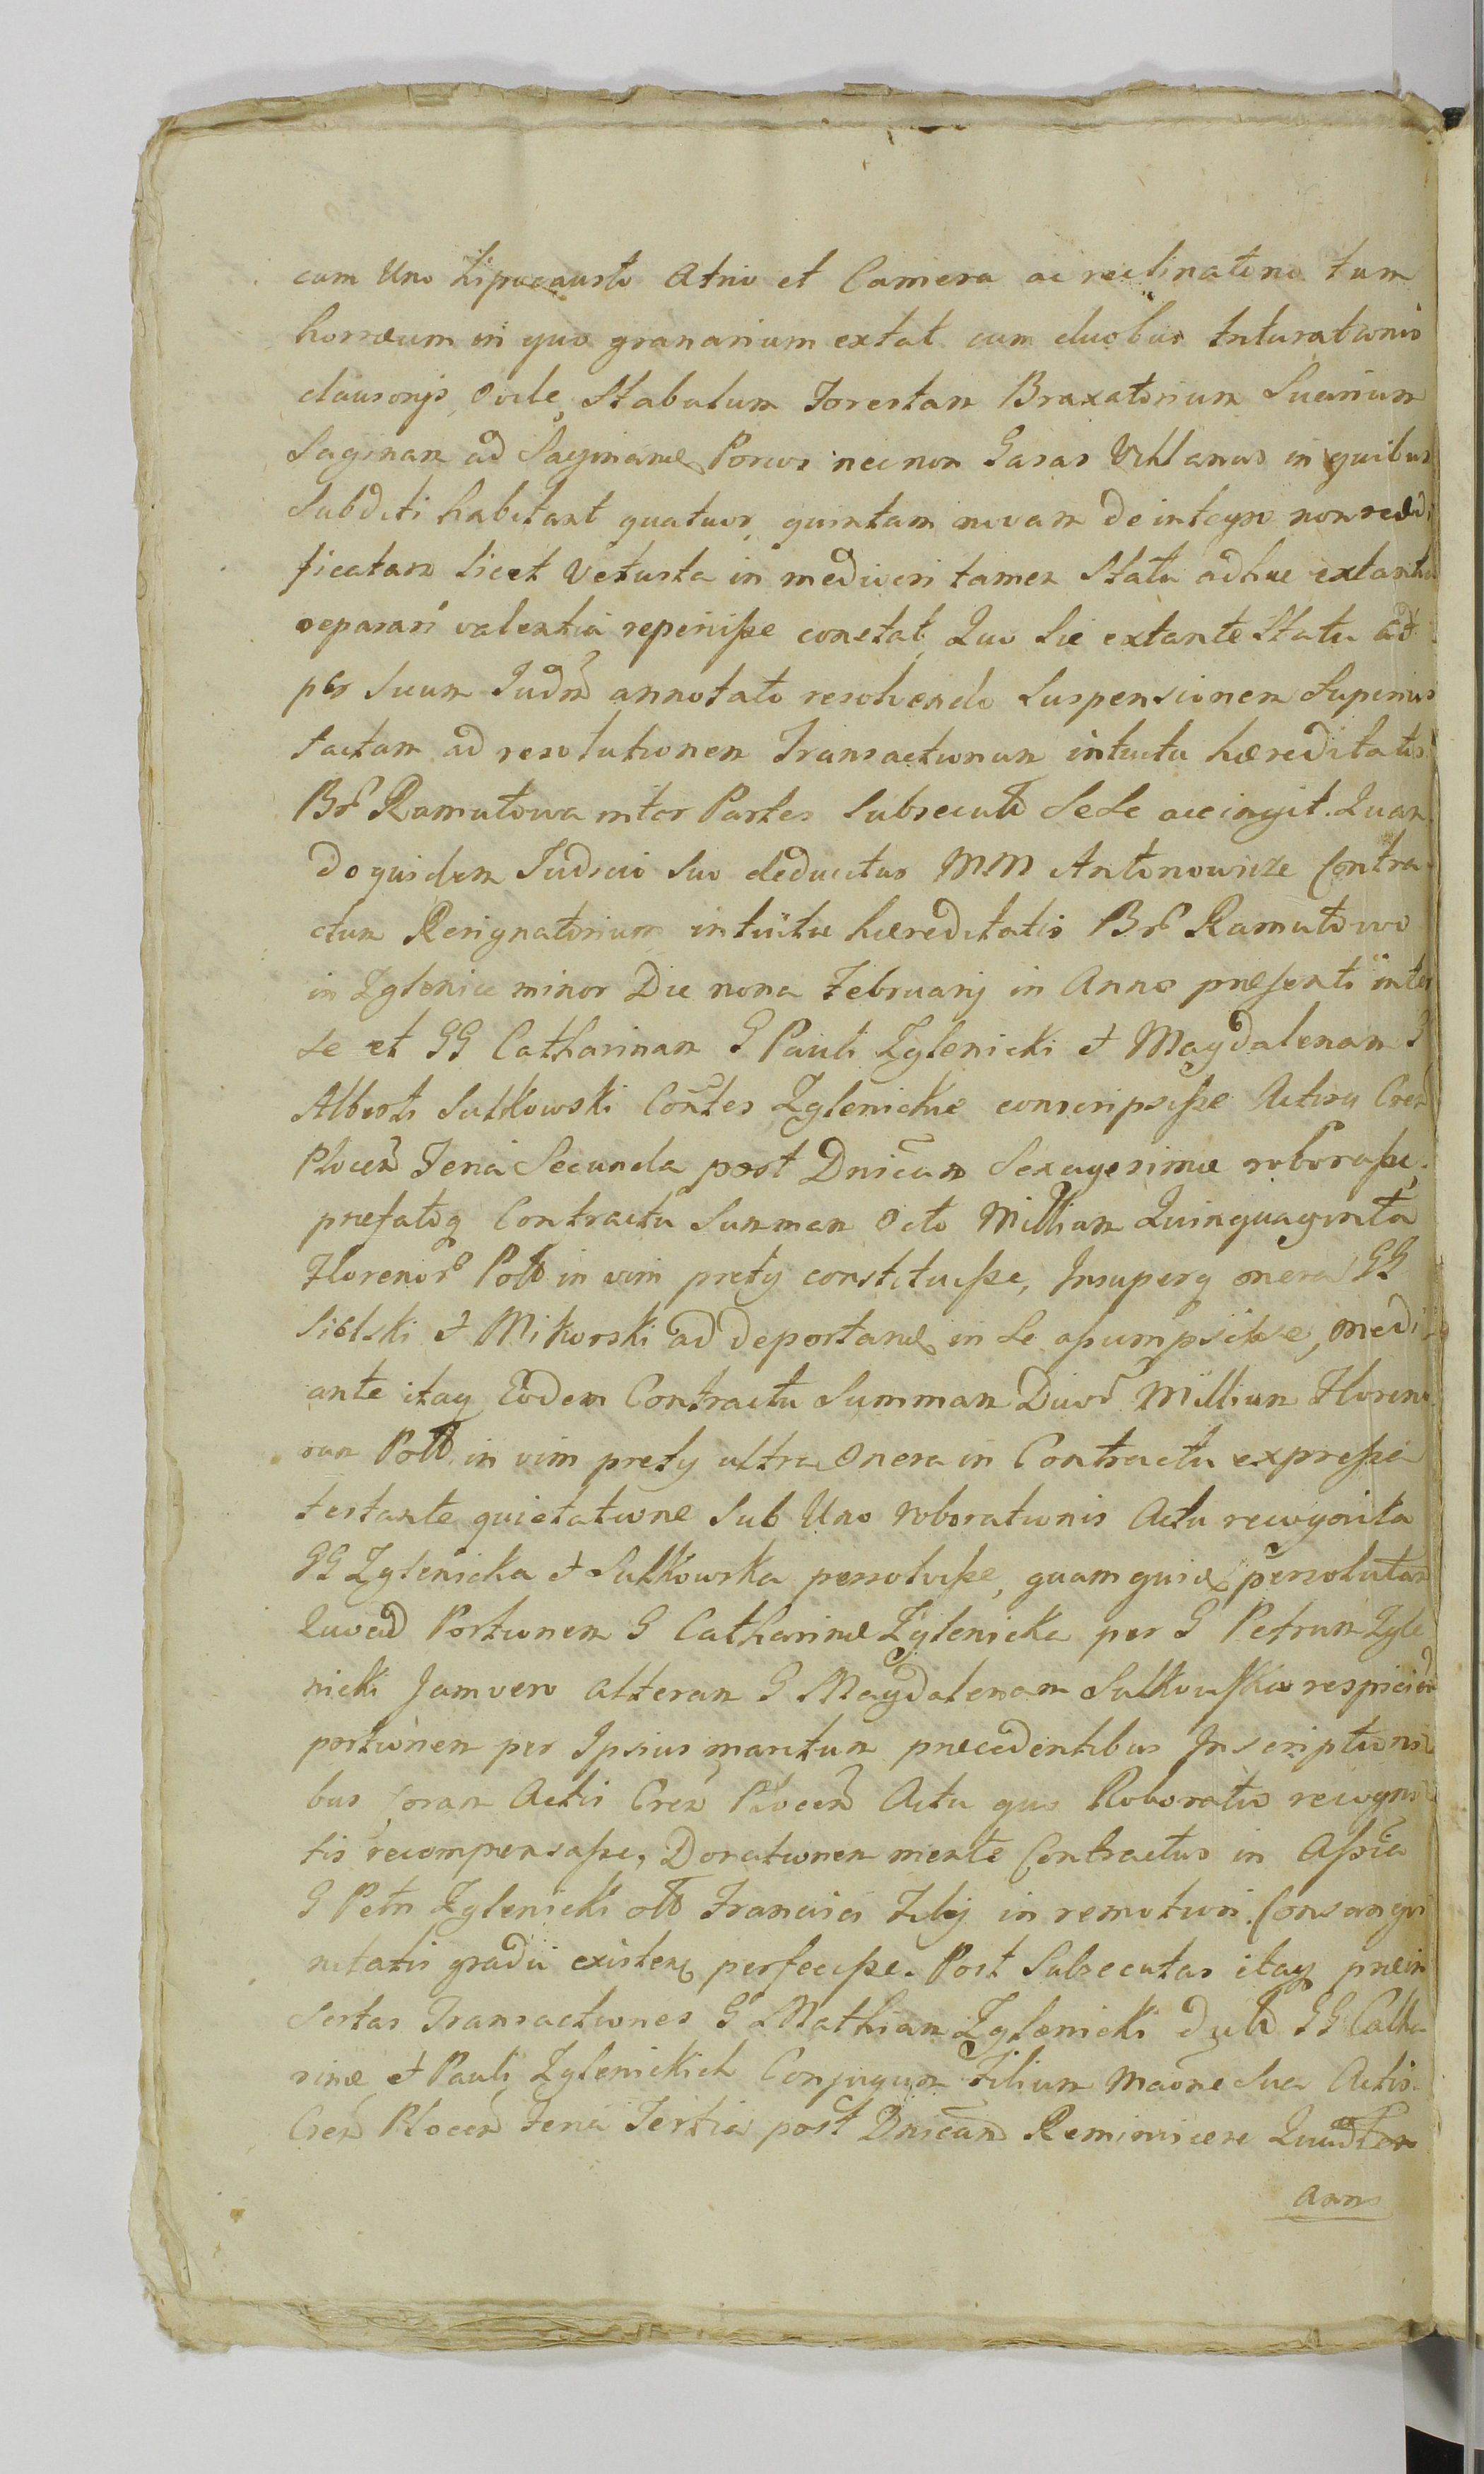 cum Uno hipocausto Atrio et Camera ac reclinatorio tum
horreum in quo granarium extat cum duobus triturationis
clausorijs, Ovile, Stabulum Forestam Braxatorium Suarium
Saginam ad Saginand Porcos necnon Casas Villanas in quibus
Subditi habitant quatuor, quintam novam de integro nonreædi
ficatam licet Vetusta in mediocri tamen Statu adhuc extantia
reparari valentia reperiisse constat, Quo Sic extante Statu ad
per Suum Judm annotato resolvendo Suspensionem Superius
factam ad resolutionem Transactionum intuitu hæreditatis
Br Ramutowa inter Partes Subsecuta Sese accingit. Quan
doquidem Judicio Suo deductus MM Antonowicze Contra
ctum Resignatorium intuitu hæreditatis Br Ramutowo
in Zglenice minor Die nona Februarij in Anno præsenti inter
se et GG Catharinam G Pauli Zglenicki et Magdalenam G
Alberti Sulkowski Contes Zglenickie conscripsisse Actisq Cren
Plocen Feria Secunda post Dnicam Sexagesimæ roborasse,
præfatoq Contractu Summam Octo Millium Quinquaginta
Florenor Poll in vim pretij constituisse, Insuperq onera GG
Sielski et Mikorski ad deportand in Se assumpsisse, medi
ante itaq Eodem Contractu Summam Duor Millium Floreno
rum Poll in vim pretij ultra Onera in Contractu expressa
testante quietatione Sub Uno roborationis Actu recognita
GG Zglenicka et Sulkowska persolvisse, quamquid persolutam
Quoad Portionem G Catharinæ Zglenicka per G Petrum Zgle
nicki Jamvero alteram G Magdalenam Sulkowska respiciend
portionem per Ipsius maritum præcedentibus Inscriptioni
bus coram Actis Cren Plocen Actu quo Roboratio recogni
tis recompensasse, Donationem mente Contractus in Assia
G Petri Zglenicki oll Francisci Filij in remotiori Consangvi
nitatis gradu existend perfecisse. Post Subsecutas itaq præin
Sertas Transactiones G Mathiam Zglenicki GG Catha
rinæ et Pauli Zglenickich Conjugum Filium Maone Sua Actis
Cren Plocen Feria Tertia post Dnicam Reminiscere
Anno